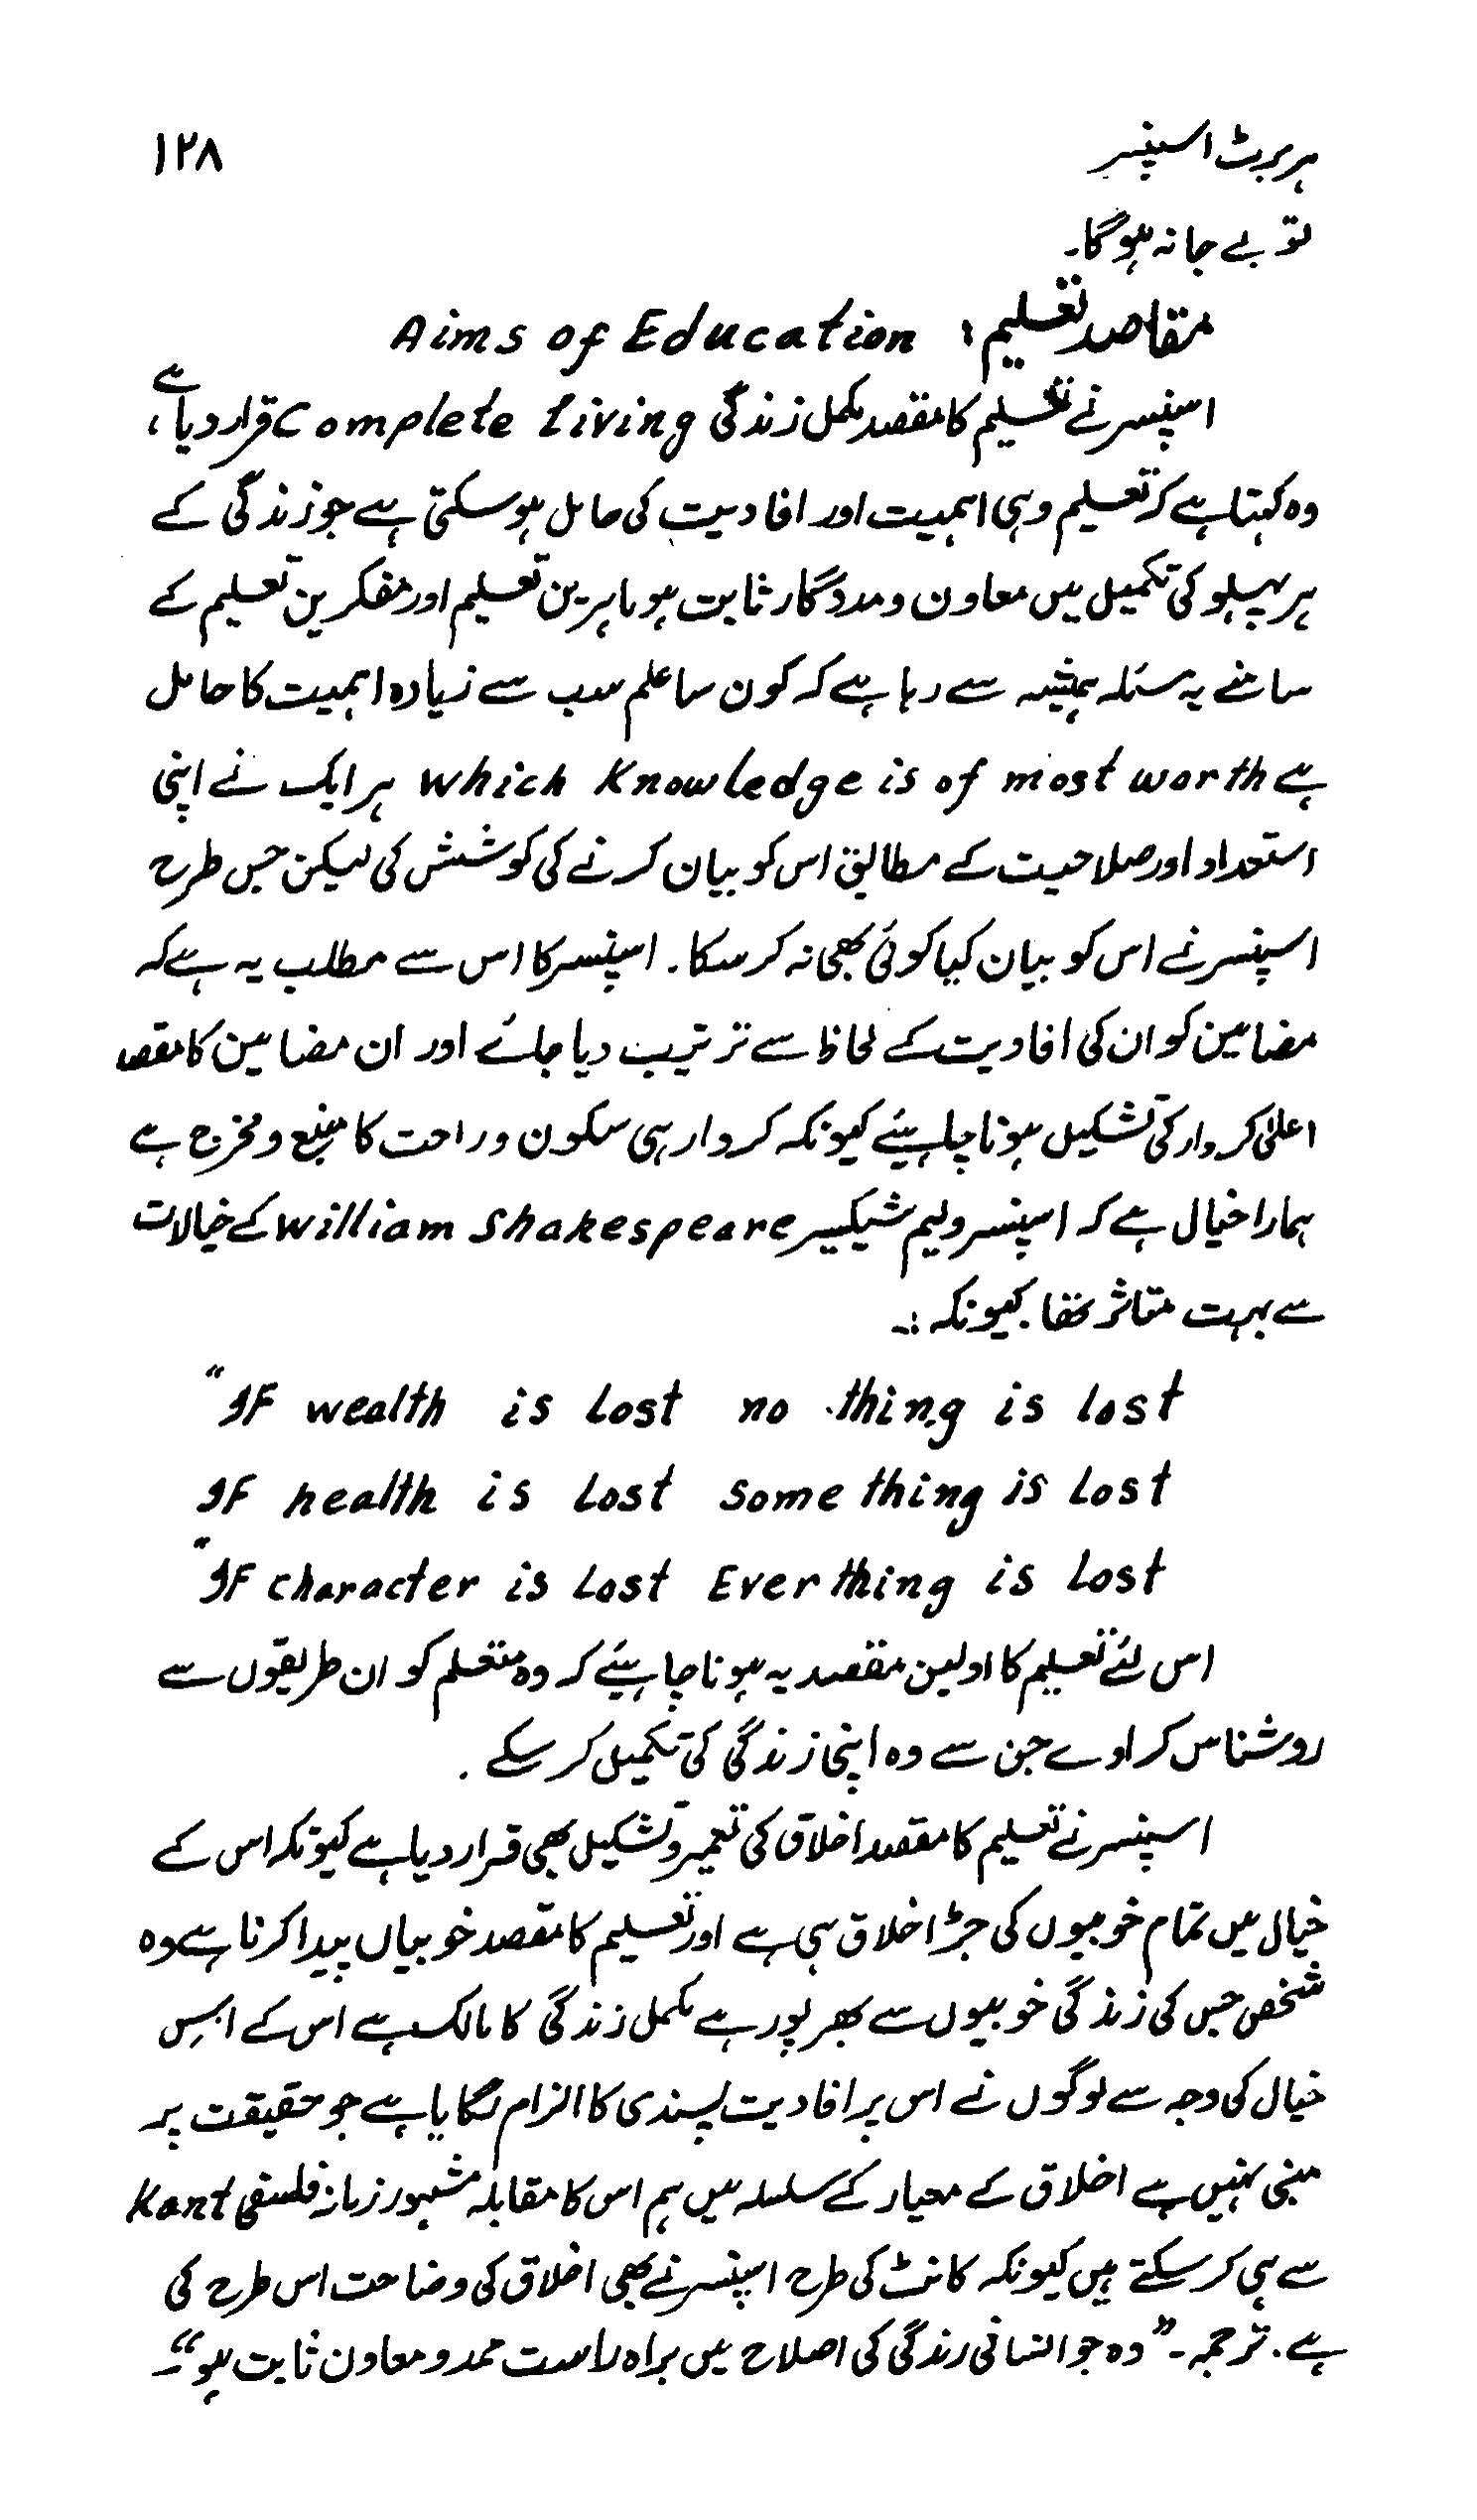 ہربرٹ اسپنسر ۱۲۸
تو بے جا نہ ہوگا۔
مقاصد تعلیم : Aims of Education
اسپنسر نے تعلیم کا مقصد مکمل زندگی Complete Living قرار دیا ہے،
وہ کہتا ہے کہ تعلیم وہی اہمیت اور افادیت کی حامل ہوسکتی ہے جو زندگی کے
ہر پہلو کی تکمیل میں معاون و مددگار ثابت ہو ماہرین تعلیم اور مفکرین تعلیم کے
سامنے یہ مسئلہ ہمیشہ سے رہا ہے کہ کون سا علم سب سے زیادہ اہمیت کا حامل
ہے which Knowledge is of most worth ہر ایک نے اپنی
استعداد اور صلاحیت کے مطابق اس کو بیان کرنے کی کوشش کی لیکن جس طرح
اسپنسر نے اس کو بیان کیا کوئی بھی نہ کرسکا۔ اسپنسر کا اس سے مطلب یہ ہے کہ
مضامین کو ان کی افادیت کے لحاظ سے ترتیب دیا جائے اور ان مضامین کا مقصد
اعلیٰ کردار کی تشکیل ہونا چاہیئے کیونکہ کردار ہی سکون و راحت کا منبع و مخرج ہے
ہمارا خیال ہے کہ اسپنسر ولیم شیکسپیر William Shakespeare کے خیالات
سے بہت متاثر تھا کیونکہ :۔
"If wealth is Lost no thing is lost
If health is Lost some thing is Lost
"If character is Lost Ever thing is Lost
اس لئے تعلیم کا اولین مقصد یہ ہونا چاہیئے کہ وہ متعلم کو ان طریقوں سے
روشناس کراوے جن سے وہ اپنی زندگی کی تکمیل کرسکے۔
اسپنسر نے تعلیم کا مقصد اخلاق کی تعمیر و تشکیل بھی قرار دیا ہے کیونکہ اس کے
خیال میں تمام خوبیوں کی جڑ اخلاق ہی ہے اور تعلیم کا مقصد خوبیاں پیدا کرنا ہے وہ
شخص جس کی زندگی خوبیوں سے بھرپور ہے مکمل زندگی کا مالک ہے اس کے اسی
خیال کی وجہ سے لوگوں نے اس پر افادیت پسندی کا الزام لگایا ہے جو حقیقت پر
مبنی نہیں ہے اخلاق کے معیار کے سلسلہ میں ہم اس کا مقابلہ مشہور زمانہ فلسفی Kant
سے ہی کرسکتے ہیں کیونکہ کانٹ کی طرح اسپنسر نے بھی اخلاق کی وضاحت اس طرح کی
ہے۔ ترجمہ۔ "وہ جو انسانی زندگی کی اصلاح میں براہ راست ممد و معاون ثابت ہو"۔